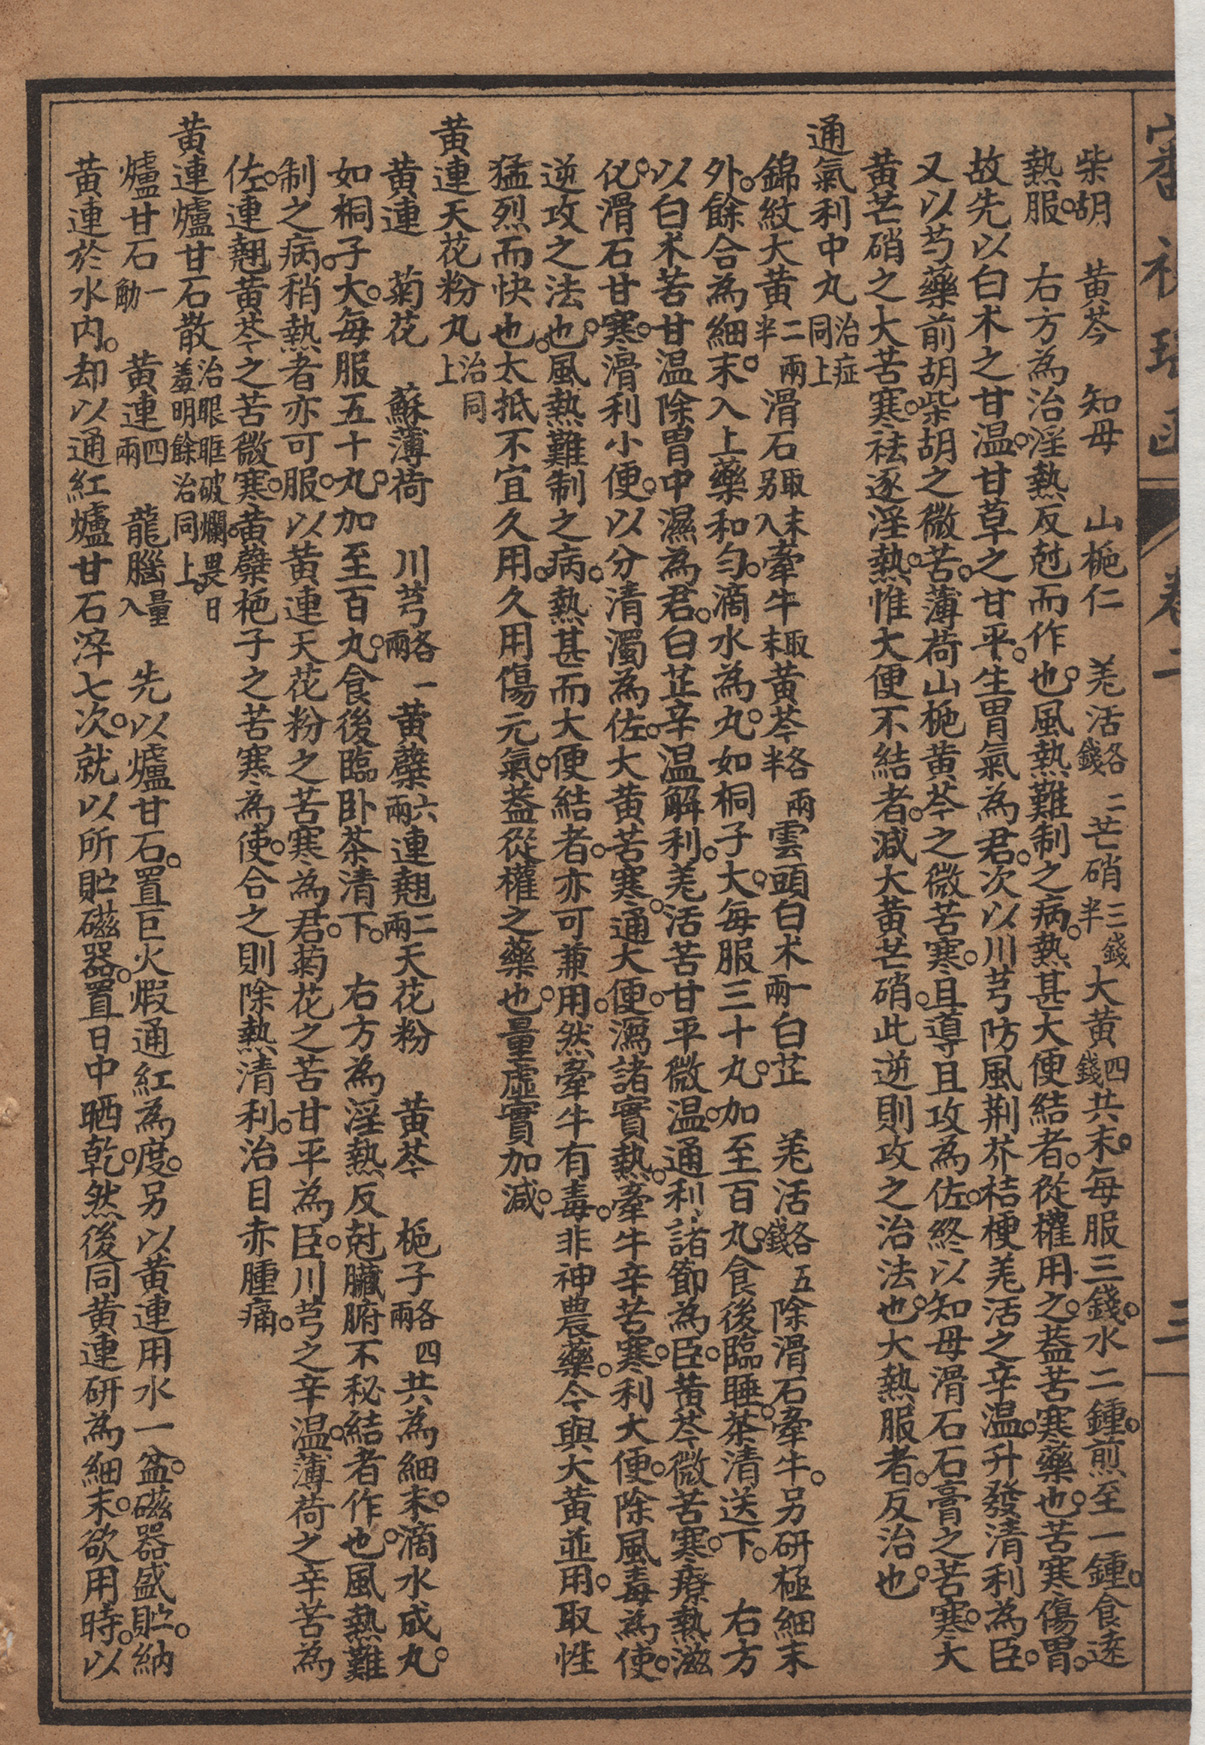 柴胡　黃芩　知母　山梔仁　羌活各二錢芒硝三錢半大黃四錢共末。每服三錢。水二鍾。煎至一鍾。食遠
熱服。　右方為治淫熱反尅而作也。風熱難制之病。熱甚大便結者。從權用之。蓋苦寒藥也。苦寒傷胃。
故先以白术之甘温。甘草之甘平。生胃氣為君。次以川芎防風荆芥桔梗羌活之辛温。升發清利為臣。
又以芍藥前胡柴胡之微苦。薄荷山梔黃芩之微苦寒。且導且攻為佐。終以知母滑石石膏之苦寒。大
黃芒硝之大苦寒。祛逐淫熱。惟大便不結者。減大黃芒硝。此逆則攻之治法也。大熱服者。反治也。
通氣利中丸治症同上
錦紋大黃二兩半滑石取末另入牽牛取末黃芩各兩半雲頭白术一兩白芷　羌活各五錢除滑石牽牛。另研極細末
外。餘合為細末。入上藥和勻。滴水為丸。如桐子大。每服三十丸。加至百丸。食後臨睡。茶清送下。　右方
以白术苦甘温除胃中濕為君。白芷辛温解利。羌活苦甘平微温。通利諸節為臣。黃芩微苦寒。療熱滋
化。滑石甘寒。滑利小便。以分清濁為佐。大黃苦寒。通大便。瀉諸實熱。牽牛辛苦寒。利大便。除風毒為使。
逆攻之法也。風熱難制之病。熱甚而大便結者。亦可兼用。然牽牛有毒。非神農藥。今與大黃並用。取性
猛烈而快也。大抵不宜久用。久用傷元氣。蓋從權之藥也。量虛實加減。
黃連天花粉丸治同上
黃連　菊花　蘇薄荷　川芎各一兩黃蘗六兩連翹二兩天花粉　黃芩　梔子各四兩共為細末。滴水成丸。
如桐子大。每服五十丸。加至百丸。食後臨卧茶清下。　右方為淫熱反尅臟腑不秘結者作也。風熱難
制之病。稍熱者亦可服。以黃連天花粉之苦寒為君。菊花之苦甘平為臣。川芎之辛温。薄荷之辛苦為
佐。連翹黃芩之苦微寒。黃蘗梔子之苦寒為使。合之則除熱清利。治目赤腫痛。
黃連爐甘石散治眼眶破爛畏日羞明餘治同上。
爐甘石一觔　黃連四兩　龍腦量入　先以爐甘石。置巨火煆通紅為度。另以黃連用水一盆。磁器盛貯。納
黃連於水內。却以通紅爐甘石淬七次。就以所貯磁器。置日中晒乾。然後同黃連研為細末。欲用時。以
卷二
三